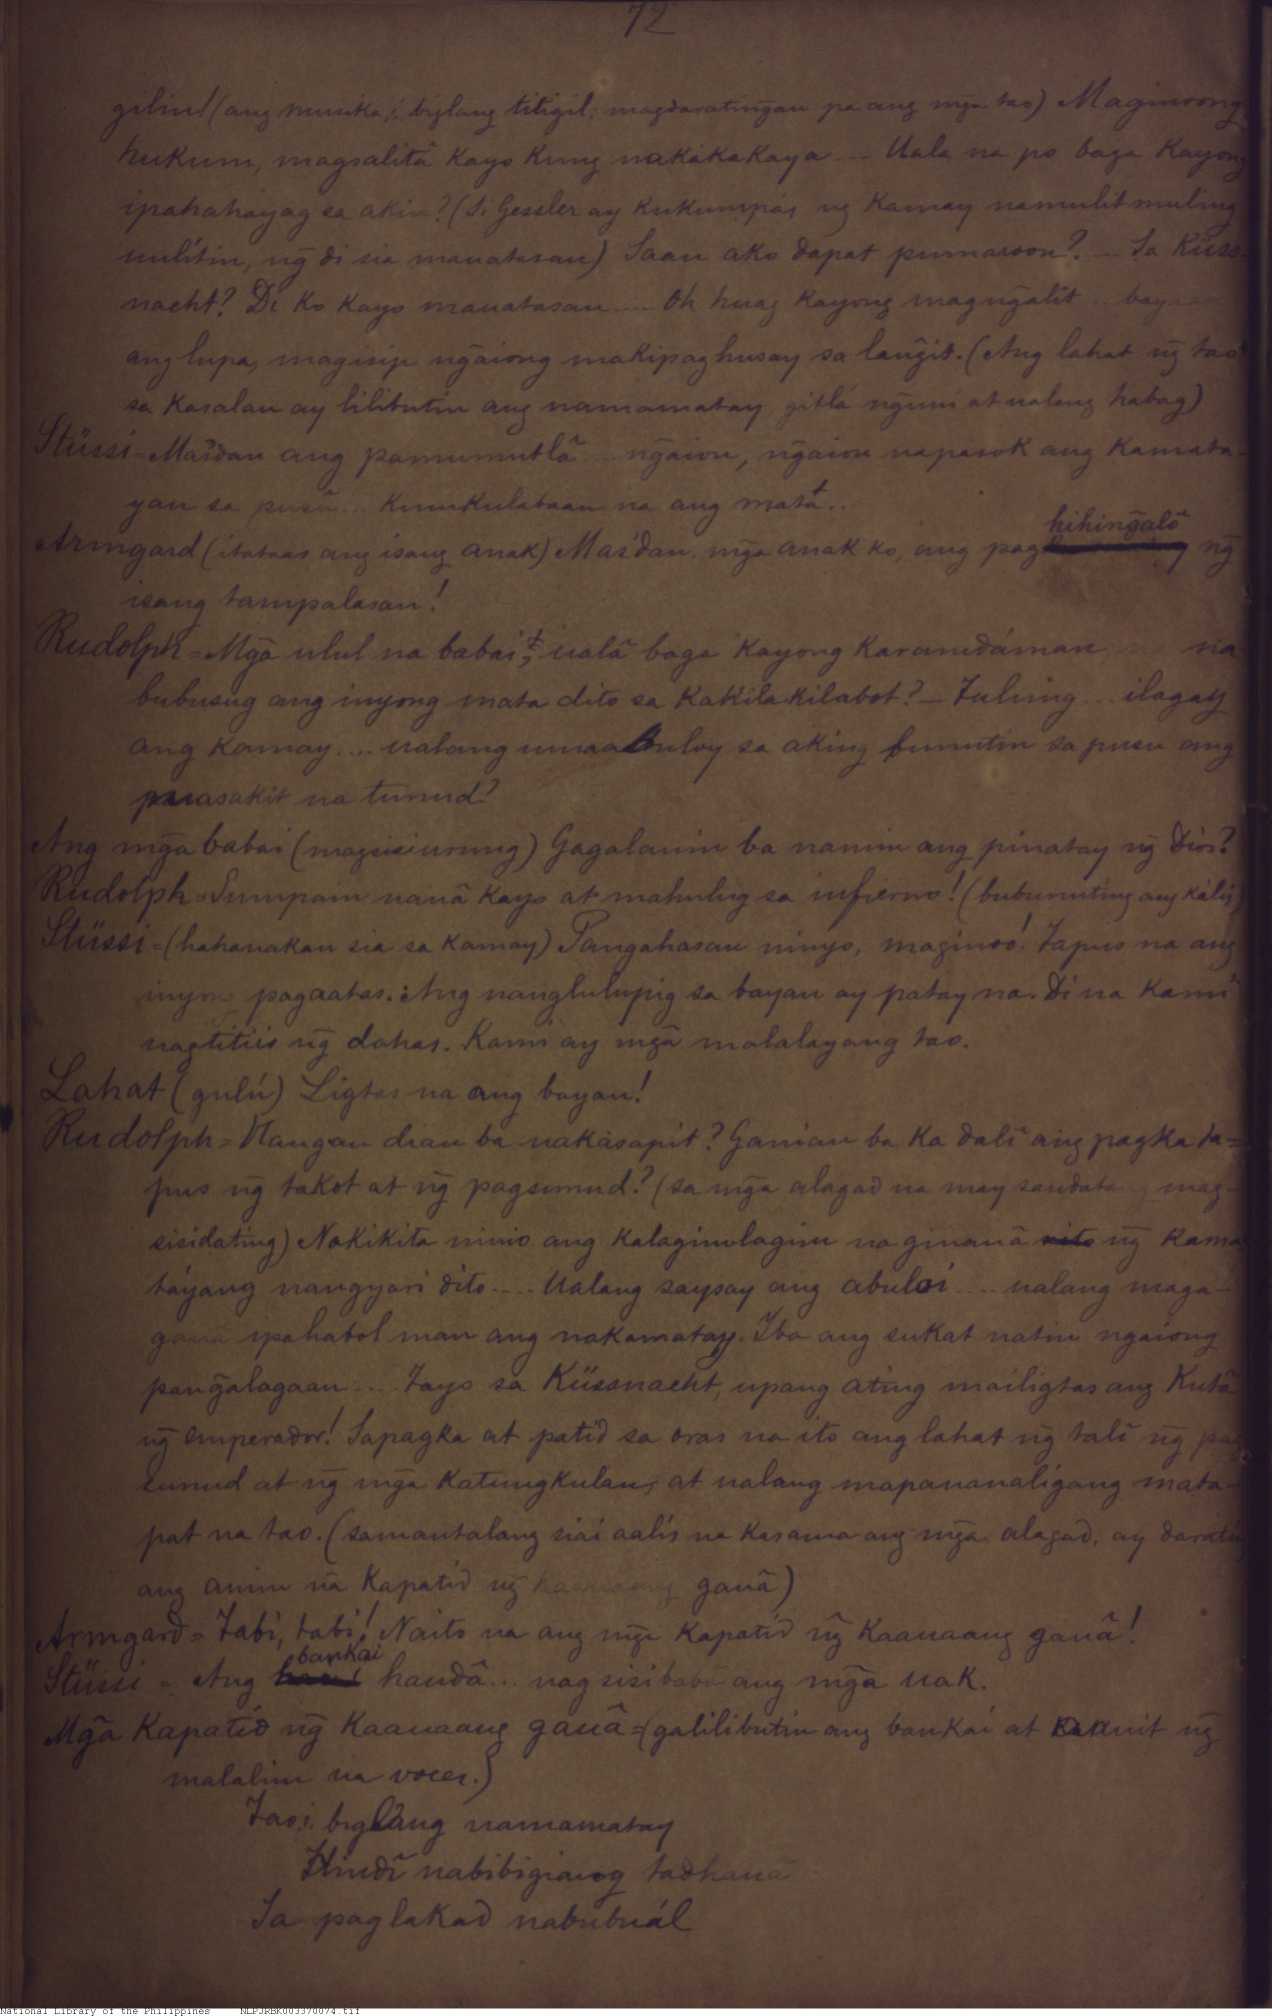 72
giliu! (ang musika,i, biglang titigil, magdaratingan pa ang mg̃a tao) Maginoong
hukum, magsalitâ kayo kung nakakakaya ... Uala na po baga kayong
ipahahayag sa akin? (Si Gessler ay kukumpás ng kamay na muli't muling
uulitin, ng̃ di sia mauatasan) Saan ako dapat pumaroon? — Sa Küss-
nacht? Di ko kayo mauatasan .... Oh huag kayong magng̃alit ...
ang lupa, magisip ng̃aiong makipaghusay sa lang̃it. (Ang lahat ng̃ tao
sa kasalan ay lilibutin ang namamatay, gitlá ng̃uni at ualang habag)
Stüssi = Masdan ang pamumutlâ ... ng̃aion, ng̃aion napasok ang kamata-
yan sa pusû ... kumukulabaan na ang matá..
Armgard (itataas ang isang anak) Masdan, mg̃a anak ko, ang pag
hihing̃alô
ng̃
isang tampalasan!
Rudolph = Mg̃a ulul na babai, ualâ baga kayong karamdáman na
bubusug ang inyong mata dito sa kakilakilabot? — Tuling ... ilagay
ang kamay .... ualang umaabuloy sa aking bunutin sa pusu ang
masakit na tunud?
Ang mg̃a babai (magsisiurung) Gagalauin ba namin ang pinatay ng̃ Dios?
Rudolph = Sumpain nauâ kayo at mahulug sa infierno! (bubunuting ang kális)
Stüssi = (hahauakan sia sa kamay) Pangahasan ninyo, maginoo! Tapus na ang
inyong pagaatas. Ang nanglulupig sa bayan ay patay na. Di na kami
nagtitiis ng̃ dahas. Kami ay mg̃a malalayang tao.
Lahat (guló) Ligtas na ang bayan!
Rudolph = Haugan dian ba nakasapit? Ganian ba kadali ang pagkata=
pus ng̃ takot at ng̃ pagsunud? (sa mg̃a alagad na may sandatang mag-
sisidating) Nakikita ninio ang kalaginlaginu na ginauâ ng̃ kama
táyang nangyari dito .... Ualang saysay ang abuloi .... ualang maga-
gaua ypahabol man ang nakamatay. Iba ang sukat natin ngaiong
pang̃alagaan ... Tayo sa Küssnacht, upang ating mailigtas ang Kutâ
ng̃ emperador! Sapagka at patid sa oras na ito ang lahat ng̃ tali ng̃ pag
sunud at ng̃ mg̃a katungkulan, at ualang mapananaligang mata-
pat na tao. (samantalang siai aalis na kasama ang mg̃a alagad, ay darating
ang anim na kapatid ng̃ kaauaang gauâ)
Armgard = Tabi, tabi! Naito na ang mg̃a kapatid ng̃ kaauaang gauâ!
Stüssi = Ang
bankai
handâ... nagsisibaba ang mg̃a uak.
Mg̃a kapatid ng̃ kaauaang gauâ = (galilibutin ang bankai at ng̃
malalim na voces.)
Tao,i, biglang namamatay
Hindî nabibigiang tadhanâ
Sa paglakad nabubuál
National Library of the Philippines NLPJRBK003370074.tif